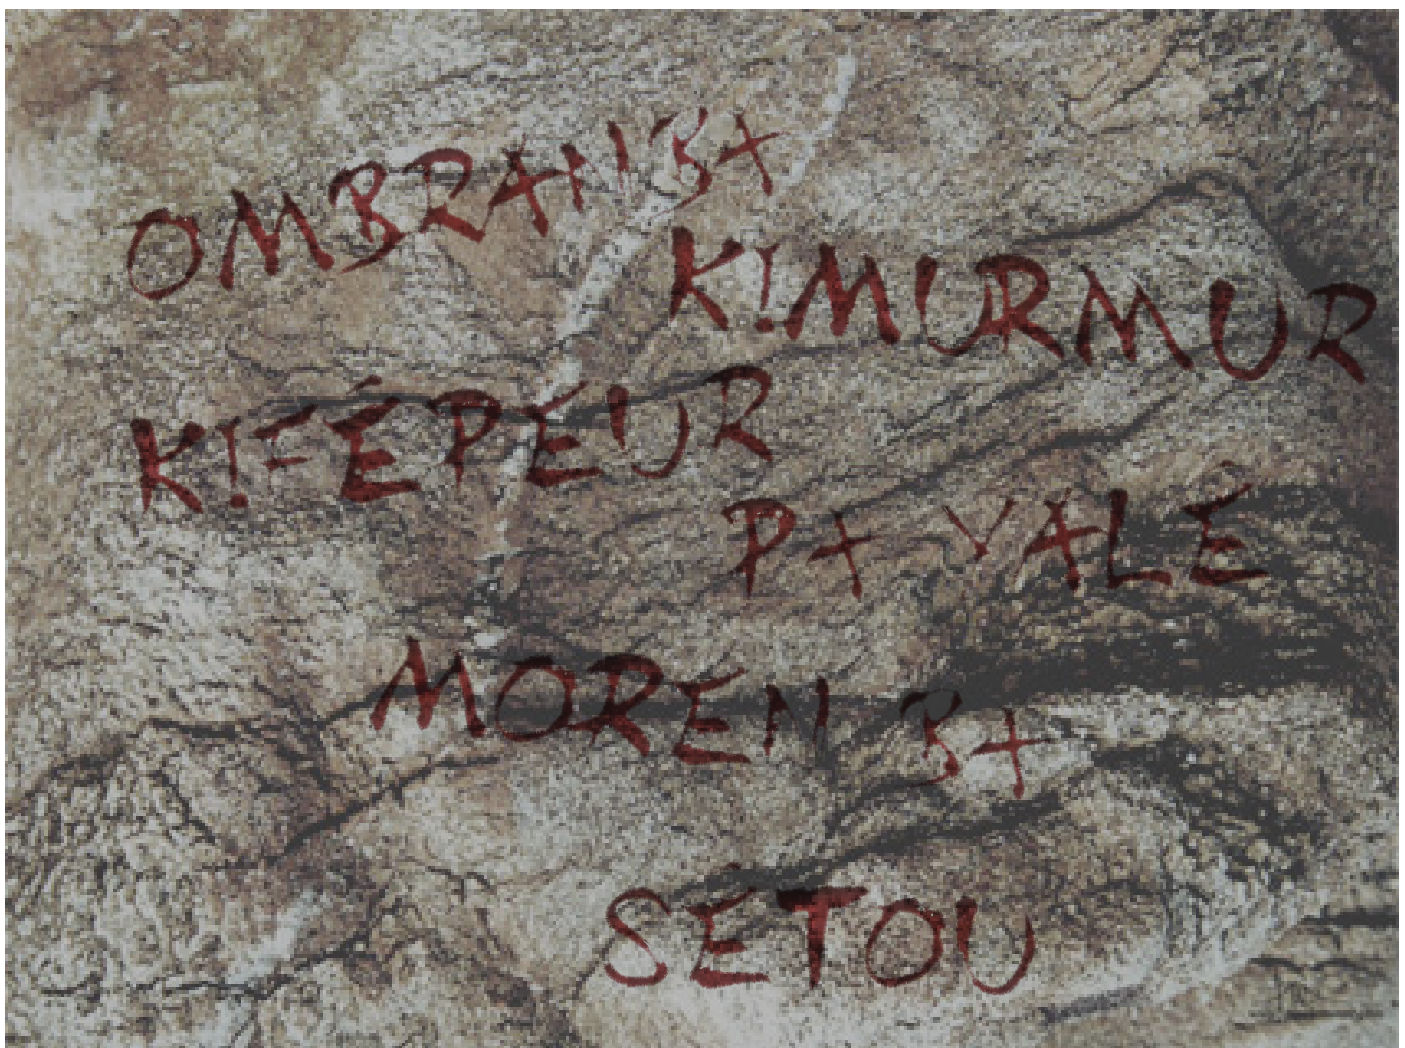 OMBRAN B+
K!MURMUR
K!FÉPEUR
P+ VALÉ
MOREN B+
SÉTOU